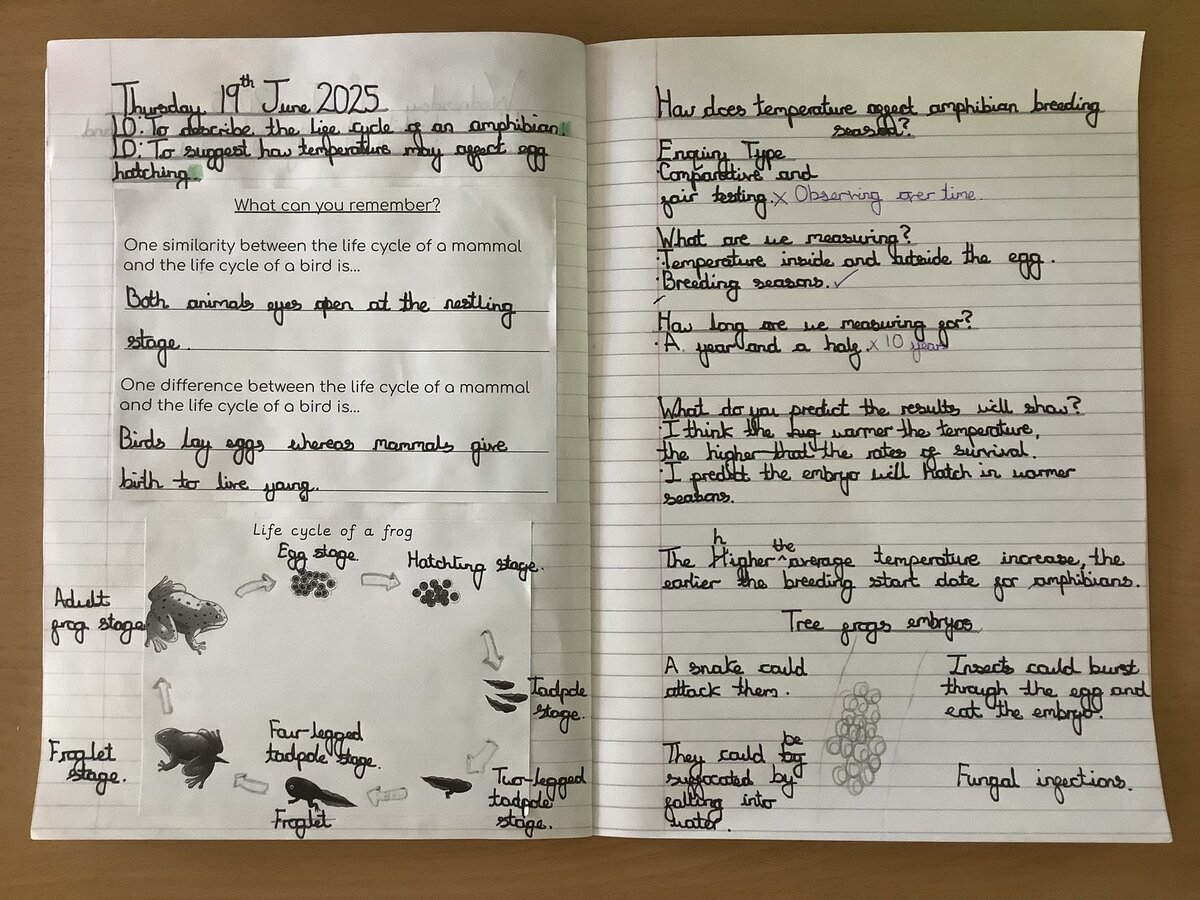 Thursday 19th June 2025
LO: To describe the life cycle of an amphibian.
LO: To suggest how temperature may affect egg
hatching.
What can you remember?
One similarity between the life cycle of a mammal
and the life cycle of a bird is...
Both animals eyes open at the nestling
stage.
One difference between the life cycle of a mammal
and the life cycle of a bird is...
Birds lay eggs whereas mammals give
birth to live young.
Life cycle of a frog
Egg stage.
Hatchting stage.
Tadpole
stage.
Two-legged
tadpole
stage.
Four-legged
tadpole stage.
Froglet
Froglet
stage.
Adult
frog stage
How does temperature affect amphibian breeding
season?
Enquiry Type
Comparative and
fair testing. x Observing over time.
What are we measuring?
·Temperature inside and outside the egg.
·Breeding seasons. ✓
How long are we measuring for?
·A year and a half. x 10 years
What do you predict the results will show?
·I think the warmer the temperature,
the higher the rates of survival.
·I predict the embryo will hatch in warmer
seasons.
h the
The Higher ^average temperature increase, the
earlier the breeding start date for amphibians.
Tree frogs embryos
A snake could
attack them.
Insects could burst
through the egg and
eat the embryo.
be
They could
suffocated by
falling into
water.
Fungal infections.